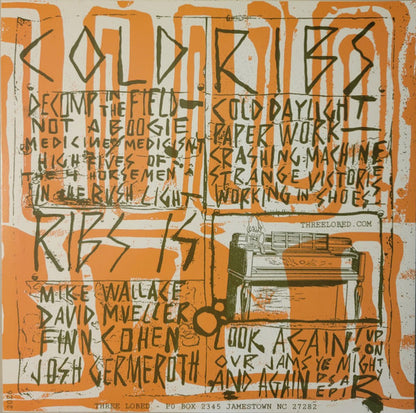 COLD RIBS
DECOMP IN THE FIELD—
NOT A BOOGIE
MEDICINE MEDICISN'T
HIGH FIVES OF
THE 4 HORSEMEN
IN THE RUSH LIGHT
COLD DAYLIGHT
PAPER WORK—
CRASHING MACHINE
STRANGE VICTORIES
WORKING IN SHOES
RIBS IS
THREELOBED.COM
MIKE WALLACE
DAVID MUELLER
FINN COHEN
JOSH GERMEROTH
LOOK AGAIN! UP-
ON
OUR JAMS YE MIGHTY
AND AGAIN
THREE LOBED - PO BOX 2345 JAMESTOWN NC 27282